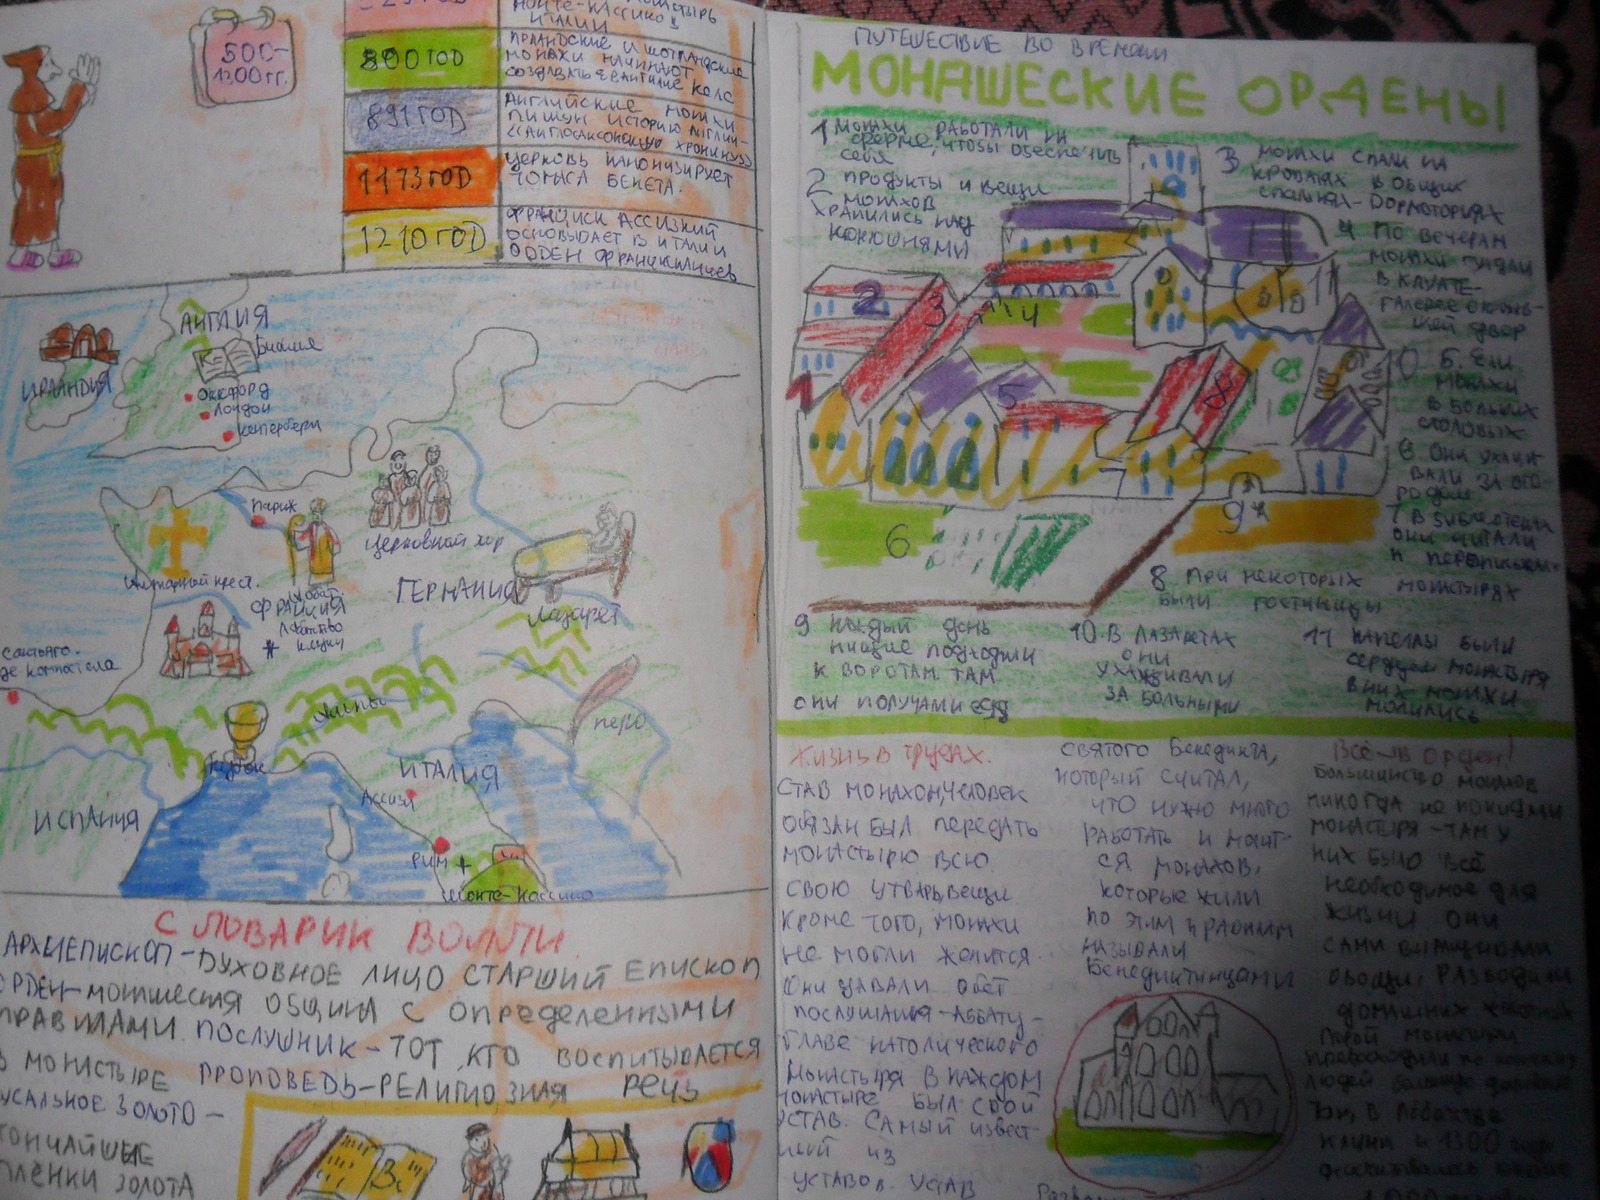 500-
1300 гг.
МОНТЕ-КАССИНО В
ИТАЛИИ
800 ГОД
ИРЛАНДСКИЕ И ШОТЛАНДСКИЕ
МОНАХИ НАЧИНАЮТ
СОЗДАВАТЬ ЕВАНГИЛИЕ КЕЛС
891 ГОД
АНГЛИЙСКИЕ МОНАХИ
ПИШУТ ИСТОРИЮ АНГЛИИ-
«АНГЛОСАКСОНСКУЮ ХРОНИКУ»
1173 ГОД
ЦЕРКОВЬ КАНОНИЗИРУЕТ
ТОМАСА БЕКЕТА.
1210 ГОД
ФРАНЦИСК АССИЗКИЙ
ОСНОВЫВАЕТ В ИТАЛИИ
ОРДЕН ФРАНЦИСКАНЦЕВ
АНГЛИЯ
Библия
ИРЛАНДИЯ
Оксфорд
Лондон
Кетербери
Париж
Церковный хор
ГЕРМАНИЯ
Лазарет
крест.
ФРАНЦИЯ
Аббатство
Клюни
Сантьяго-
де-компостела
Альпы
перо
Кубок
ИТАЛИЯ
Ассизи
ИСПАНИЯ
РИМ
Монте-Кассино
СЛОВАРИК
АРХИЕПИСКОП-ДУХОВНОЕ ЛИЦО СТАРШИЙ ЕПИСКОП
ОРДЕН-МОНАШЕСКАЯ ОБЩИНА С ОПРЕДЕЛЕННЫМИ
ПРАВИЛАМИ. ПОСЛУШНИК-ТОТ, КТО ВОСПИТЫВАЕТСЯ
В МОНАСТЫРЕ ПРОПОВЕДЬ-РЕЛИГИОЗНАЯ РЕЧЬ
СУСАЛЬНОЕ ЗОЛОТО-
ТОНЧАЙШИЕ
ПЛЕНКИ ЗОЛОТА
ПУТЕШЕСТВИЕ ВО ВРЕМЕНИ
МОНАШЕСКИЕ ОРДЕНЫ
1 МОНАХИ РАБОТАЛИ НА
ФЕРМЕ, ЧТОБЫ ОБЕСПЕЧИТЬ
СЕБЯ
2 ПРОДУКТЫ И ВЕЩИ
МОНАХОВ
ХРАНИЛИСЬ НАД
КОНЮШНЯМИ
3 МОНАХИ СПАЛИ НА
КРОВАТЯХ В ОБЩИХ
СПАЛЬНЯХ-ДОРМОТОРИЯХ
4 ПО ВЕЧЕРАМ
МОНАХИ ГУЛЯЛИ
В КЛУАТЕ-
ГАЛЕРЕЕ
ДВОР
5. ЕЛИ
МОНАХИ
В БОЛЬШИХ
СТОЛОВЫХ
6 ОНИ УХАЖИ
ВАЛИ ЗА ОГО-
РОДОМ
7 В БИБЛИОТЕКАХ
ОНИ ЧИТАЛИ
И
8 ПРИ НЕКОТОРЫХ МОНАСТЫРЯХ
БЫЛИ ГОСТИНИЦЫ
9 КАЖДЫЙ ДЕНЬ
НИЩИЕ ПОДХОДИЛИ
К ВОРОТАМ. ТАМ
ОНИ ПОЛУЧАЛИ ЕДУ
10. В ЛАЗАРЕТАХ
ОНИ
УХАЖИВАЛИ
ЗА БОЛЬНЫМИ
11 КАПЕЛЛЫ БЫЛИ
СЕРДЦЕМ МОНАСТЫРЯ
В НИХ МОНАХИ
МОЛИЛИСЬ
1
2
3
4
5
6
7
8
9
10
11
ЖИЗНЬ В ТРУДАХ.
СТАВ МОНАХОМ, ЧЕЛОВЕК
ОБЯЗАН БЫЛ ПЕРЕДАТЬ
МОНАСТЫРЮ ВСЮ
СВОЮ УТВАРЬ, ВЕЩИ
КРОМЕ ТОГО, МОНАХИ
НЕ МОГЛИ ЖЕНИТСЯ.
ОНИ ДАВАЛИ ОБЕТ
ПОСЛУШАНИЯ-АББАТУ-
ГЛАВЕ КАТОЛИЧЕСКОГО
МОНАСТЫРЯ В КАЖДОМ
МОНАСТЫРЕ БЫЛ СВОЙ
УСТАВ. САМЫЙ ИЗВЕСТ-
НЫЙ ИЗ
УСТАВОВ. УСТАВ
СВЯТОГО Бенедикта,
КОТОРЫЙ СЧИТАЛ,
ЧТО НУЖНО МНОГО
РАБОТАТЬ И МОЛИТ-
СЯ МОНАХОВ,
КОТОРЫЕ ЖИЛИ
ПО ЭТИМ ПРАВИЛАМ
НАЗЫВАЛИ
Бенедиктинцами
Всё-в орден!
Большинство монахов
никогда не покидали
монастыря-там у
них было всё
необходимое для
жизни они
сами выращивали
овощи, разводили
домашних животных
Порой монастыри
превосходили по
людей
Так, в Аббатстве
Клюни к 1300 году